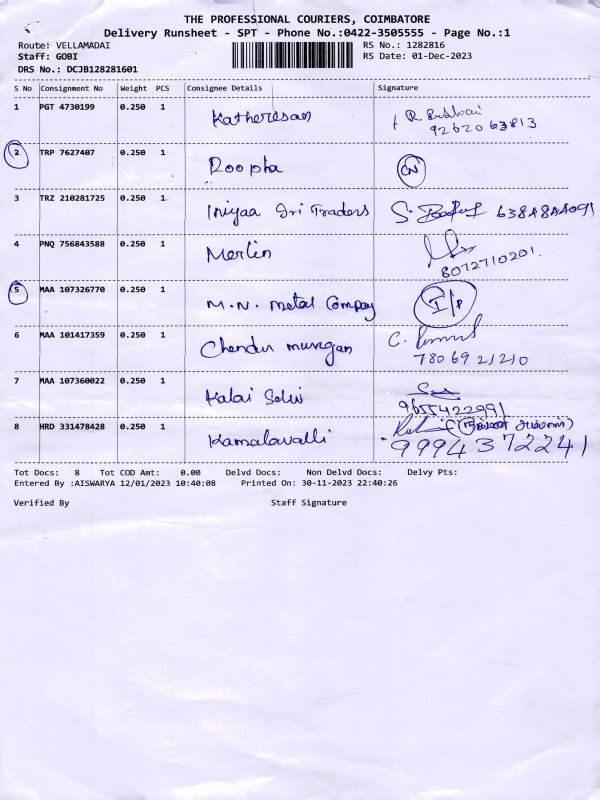 THE PROFESSIONAL COURIERS, COIMBATORE
Delivery Runsheet - SPT - Phone No.:0422-3505555 - Page No.:1
Route: VELLAMADAI RS No.: 1282816
Staff: GOBI RS Date: 01-Dec-2023
DRS No.: DCJB128281601
S No Consignment No Weight PCS Consignee Details Signature
1 PGT 4730199 0.250 1 Katheresan
9262063813
2 TRP 7627407 0.250 1 Roopha
3 TRZ 210281725 0.250 1 Iniyaa Sri Traders
4 PNQ 756843588 0.250 1 Merlin
8072710201.
5 MAA 107326770 0.250 1 M.N. Metal Compay I/P
6 MAA 101417359 0.250 1 Chendur murugan
7806921210
7 MAA 107360022 0.250 1 Kalai Selvi
9655422991
8 HRD 331478428 0.250 1 Kamalavalli
9994372241
Tot Docs: 8 Tot COD Amt: 0.00 Delvd Docs: Non Delvd Docs: Delvy Pts:
Entered By :AISWARYA 12/01/2023 10:40:08 Printed On: 30-11-2023 22:40:26
Verified By Staff Signature